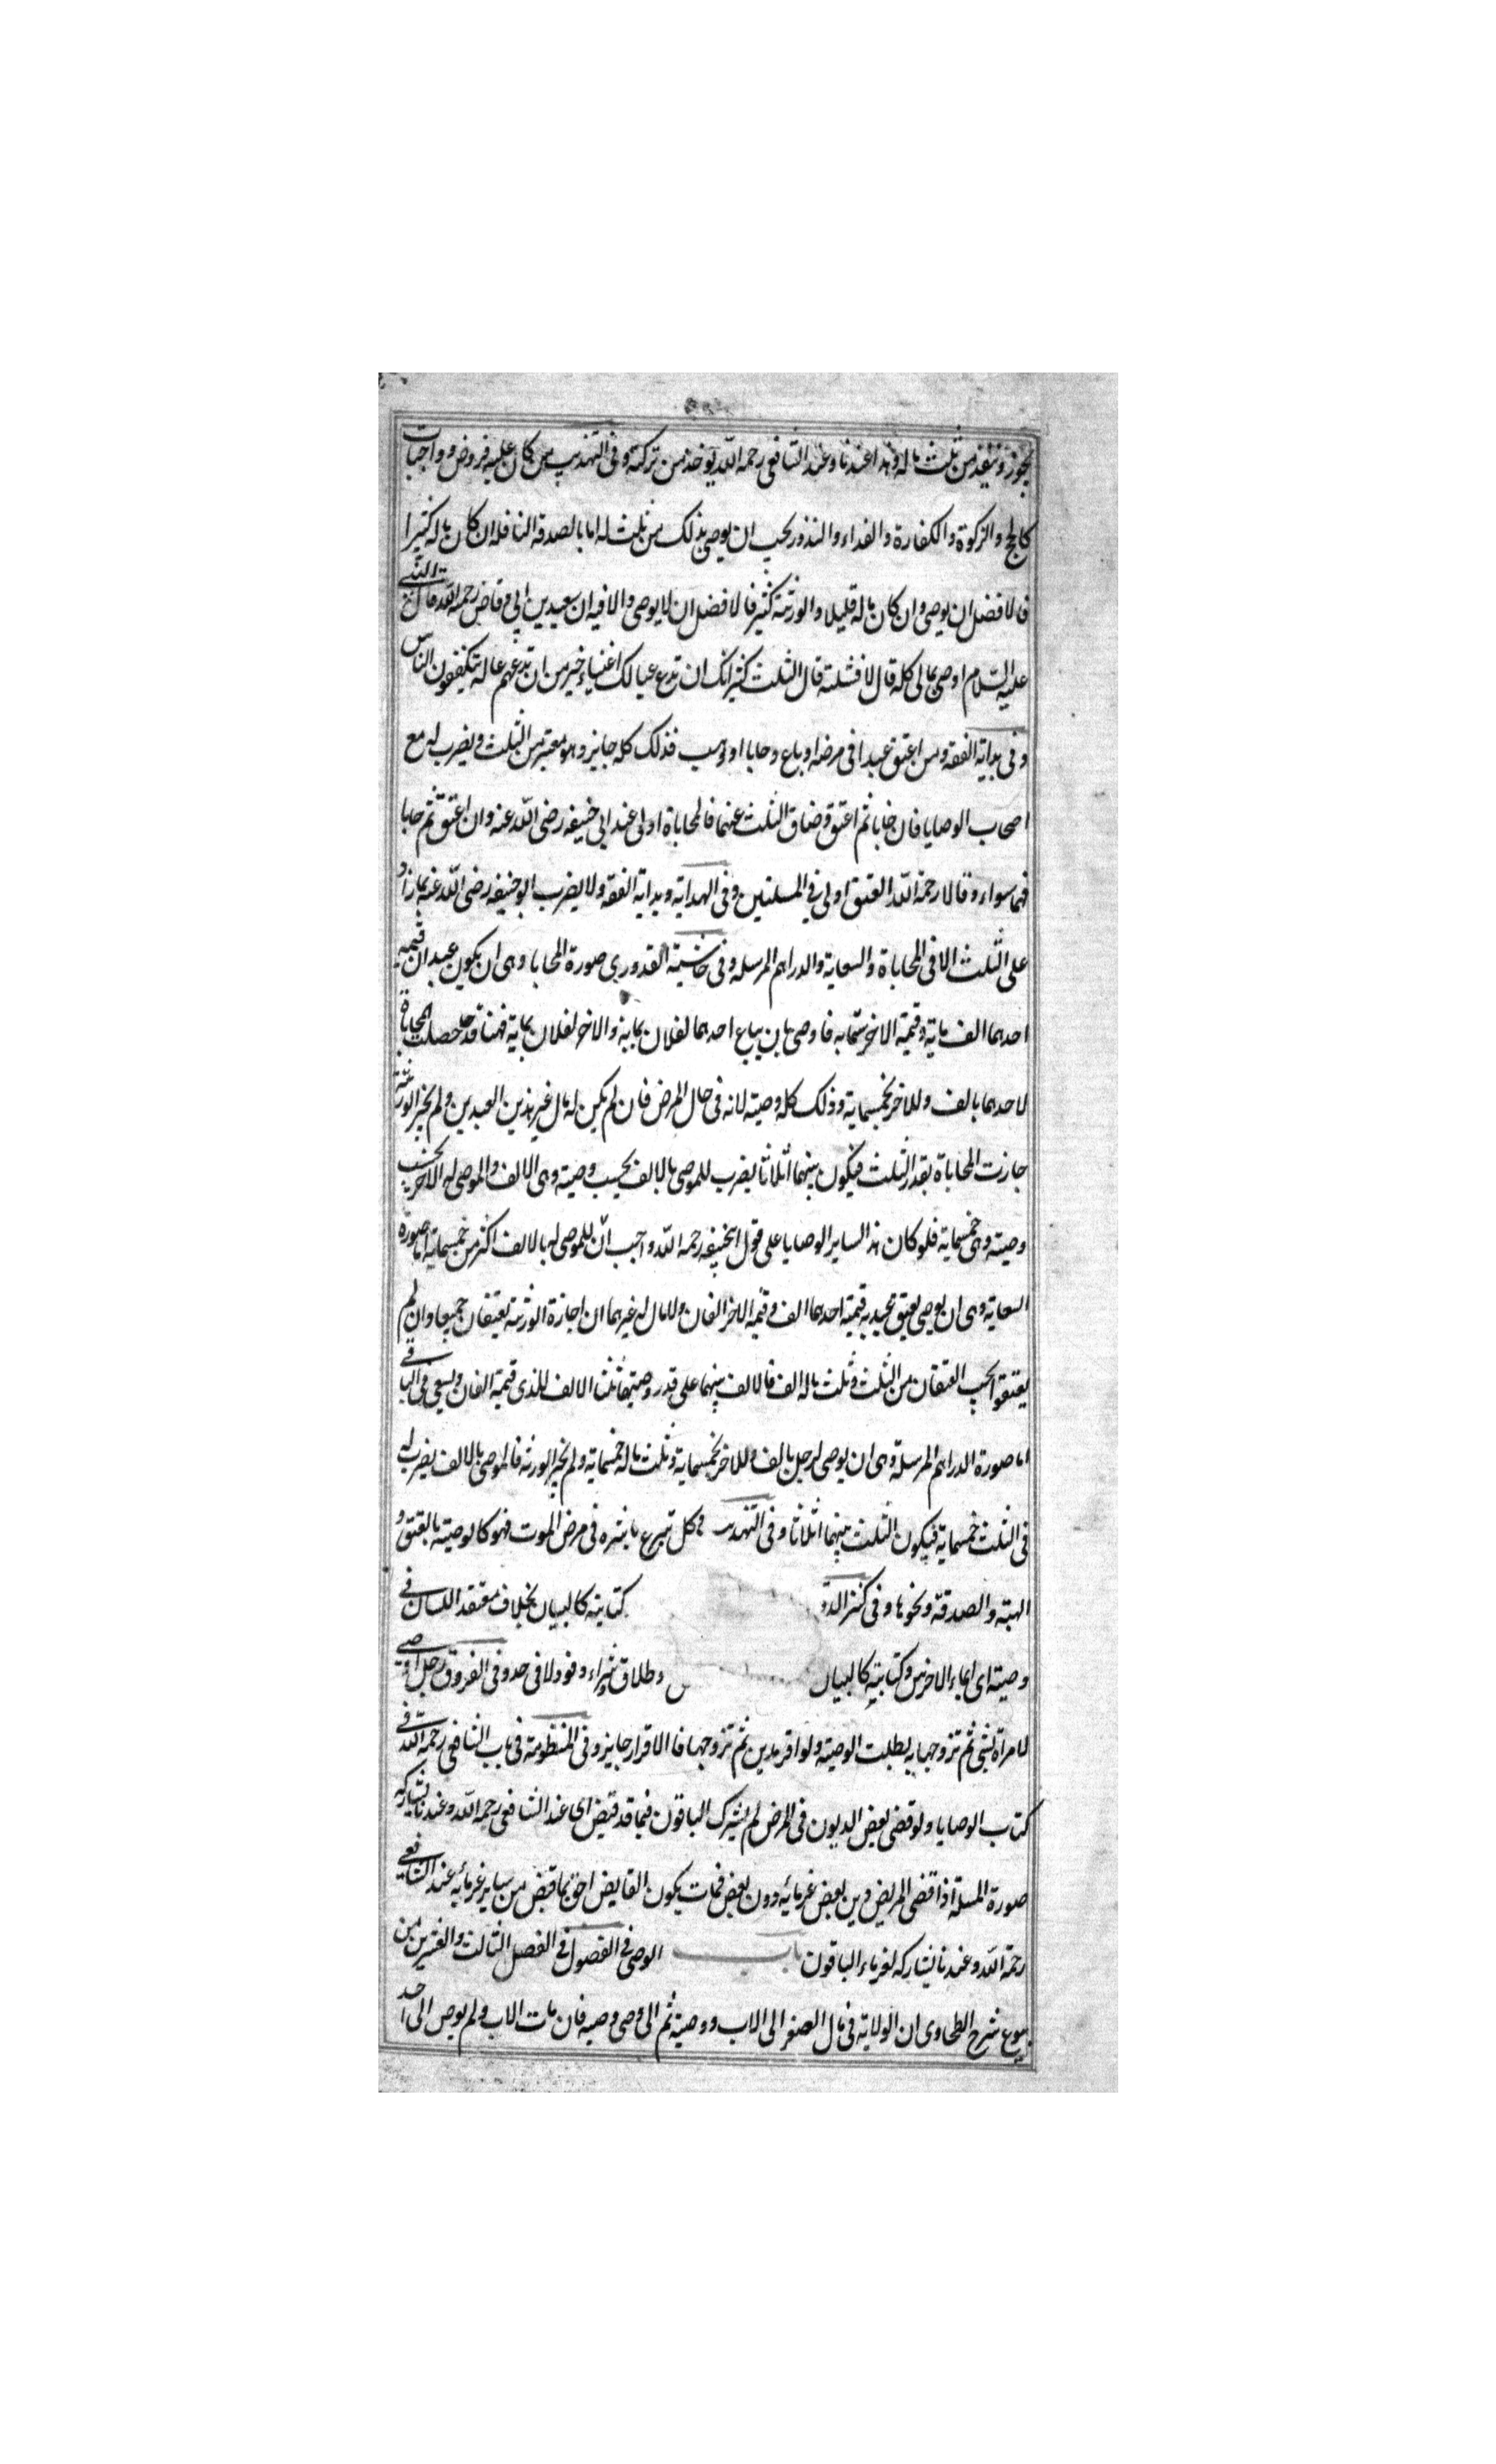 يجوز وتنفيذ من ثلث ماله وهذا عندنا وعند الشافعي رحمه الله يوخذ من تركته وفي التهذيب من كان عليه فروض وواجبات
كالحج والزكوة والكفارة والفداء والنذور يجب ان يوصي بذلك من ثلث له اما بالصدقة النافله ان كان ماله كثيرا
فالافضل ان يوصي وان كان ماله قليلا والورثة كثير فالافضل ان لا يوصي والا فيه ان سعيد بن ابي وقاص رحمه الله قال النبي
عليه السلام اوصي بمالي كله قال لا فثلثه قال الثلث كثير انك ان تدع عيالك اغنياء خير من ان تدعهم عالة يتكففون الناس
وفي بداية الفقه ومن اعتق عبدا في مرضه او باع وحابا او وهب فذلك كله جايز وهو معتبر من الثلث ويضرب له مع
اصحاب الوصايا فان حابا ثم اعتق وضاق الثلث عنهما فالمحاباة اولى عند ابي حنيفه رضى الله عنه وان اعتق ثم حابا
فهما سواء وقالا رحمة الله العتق اولي في المسلتين وفي الهداية وبداية الفقه ولا يضرب ابو حنيفه رضى الله عنه بما زاد
على الثلث الا في المحاباة والسعاية والدراهم المرسله وفي حاشية القدوري صورة المحابا وهي ان يكون عبدان قيمة
احدهما الف ماية وقيمة الاخر ستمايه فاوصى بان يباع احدهما لفلان بماية والاخر لفلان بماية فهنا قد حصلت المحاباة
لاحدهما بالف وللاخر بخمسماية وذلك كله وصية لانه في حال المرض فان لم يكن له مال غير هذين العبدين ولم يجز الورثة
جازت المحاباة بقدر الثلث فيكون بينهما اثلاثا يضرب للموصى بالالف بحسب وصيته وهي الالف والموصى له الاخر بحسب
وصيته وهي خمسماية فلو كان هذا لساير الوصايا على قول ابيحنيفه رحمه الله واجب ان للموصى له بالالف اكثر من خمسماية اما صورة
السعاية وهي ان يوصى بعتق عبديه قيمة احدهما الف وقيمة الاخر الفان ولا مال له غيرهما ان اجازة الورثة يعتقان جميعا وان لم
يعتقوا يجب العتقان من الثلث وثلث ماله الف فالالف بينهما على قدر وصيتهما ثلثا الالف للذي قيمة الفان ويسعى في الباقي
اما صورة الدراهم المرسلة وهي ان يوصي لرجل بالف وللاخر بخمسماية وثلث ماله خمسماية ولم يجز الورثة فالموصى بالالف يضرب له
في الثلث خمسماية فيكون الثلث بينهما اثلاثا وفي التهذيب في كل تبرع باشره في مرض الموت فهو كالوصية بالعتق و
الهبة والصدقة ونحوها وفي كنز الد كتابته كالبيان بخلاف معتقد اللسان في
وصية اى ايماء الاخرس وكتابته كالبيان وطلاق وشراء وقود لا في حد وفي الفروق رجل اوصى
لامراة بشئ ثم تزوجها به بطلت الوصية ولو اقر بدين ثم تزوجها فالاقرار جايز وفي المنظومة في باب الشافعي رحمه الله في
كتاب الوصايا ولو قضى بعض الديون في المرض لم يشرك الباقون فيما قد قبض اى عند الشافعي رحمه الله وعندنا يشاركه
صورة المسلة اذا قضى المريض دين بعض غرمائه دون بعض فمات يكون القابض احق بما قبض من ساير غرمائه عند الشافعي
رحمة الله وعندنا يشاركه لغرماء الباقون باب الوصي في الفصول في الفصل الثالث والعشرين من
بيوع شرح الطحاوي ان الولاية في مال الصغر الى الاب ووصيته ثم الى وصى وصيه فان مات الاب ولم يوص الى احد